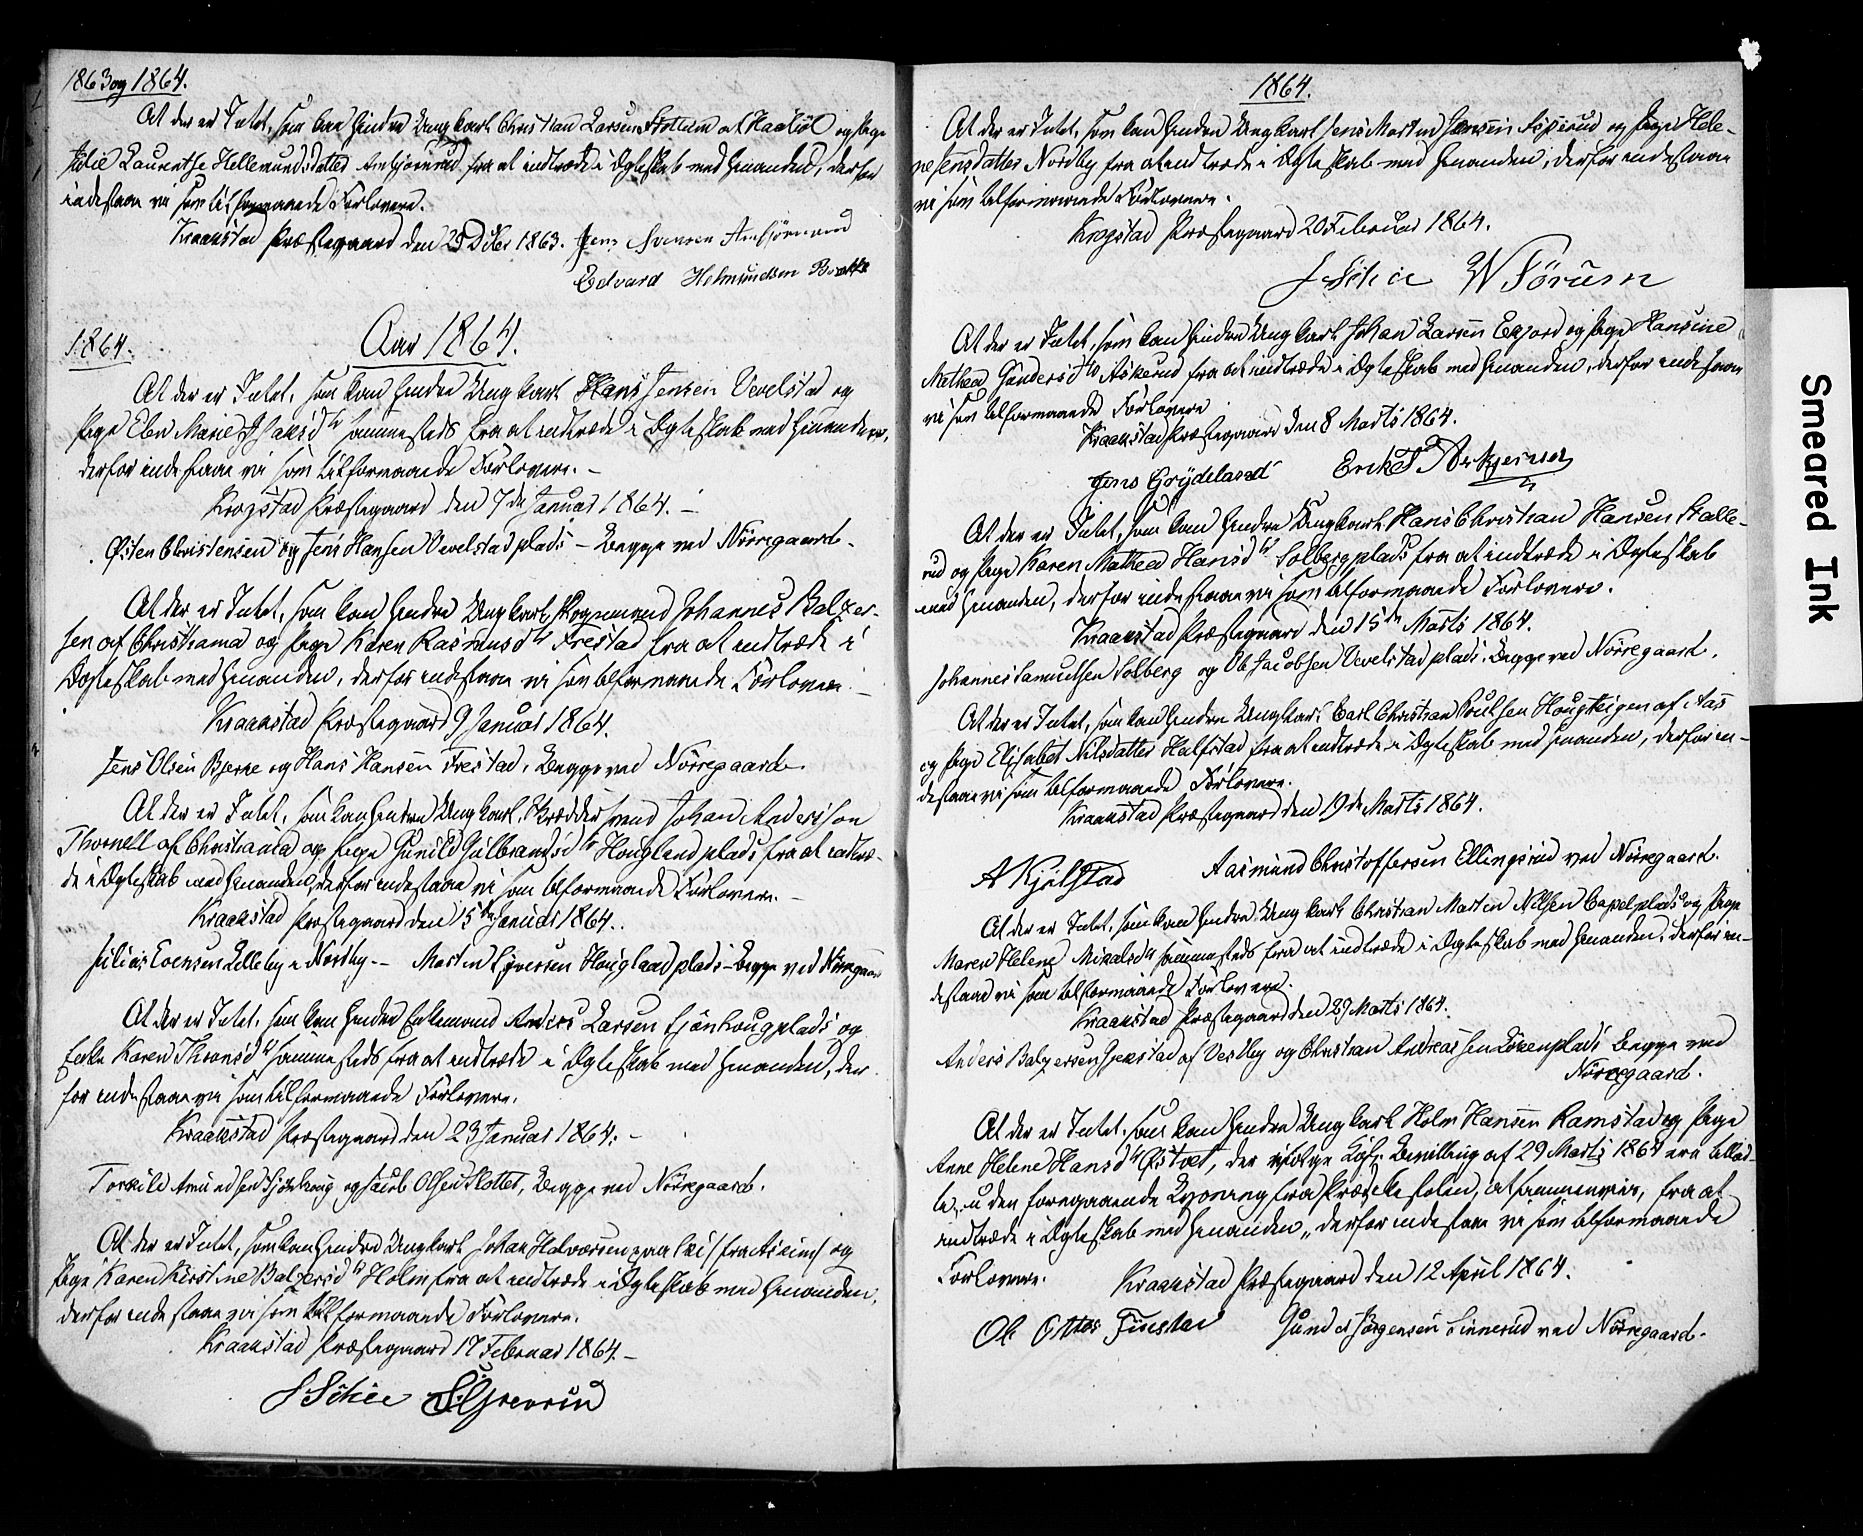 1863 og 1864.
At der er Intet, som kan hindre Ungkarl Christian Larsen af og Pige
Julie Laurentse Hellemundsdatter fra at indtræde i Ægteskab med hinanden, derfor
indestaae vi som tilformaaende Forlovere.
Kraakstad Præstegaard den 29 Dcbr 1863. Jens Svensen
Edvard Helmundsen
1864.
Aar 1864.
At der er Intet, som kan hindre Ungkarl Hans Jensen Vevelstad og
Pige Marie sammesteds fra at indtræde i Ægteskab med hinanden,
derfor indestaae vi som tilformaaende Forlovere. –
Krogstad Præstegaard den 7de Januar 1864. –
Østen Christensen og Jens Hansen Vevelstadplads – begge ved Nørregaard.
At der er Intet, som kan hindre Ungkarl, Vognmand Johannes Balzer-
sen af Christiania og Pige Karen Rasmusdtr Frestad fra at indtræde i
Ægteskab med hinanden, derfor indestaae vi som tilformaaende Forlovere. –
Kraakstad Præstegaard 9 Januar 1864.
Jens Olsen Bjerke og Hans Hansen Frestad, begge ved Nørregaard.
At der er Intet, som kan hindre Ungkarl, Skrædersvend Johan Andersson
Thornell af Christiania og Pige Gunild Gulbrandsdtr Houglandplads fra at indtræ-
de i Ægteskab med hinanden, derfor indestaae vi som tilformaaende Forlovere. –
Kraakstad Præstegaard den 15de Januar 1864.
Julius Evensen i Nordby – Martin Syversen Houglandplads – begge ved Nørregaard
At der er Intet, som kan hindre Enkemand Anders Larsen og
Enke Karen sammesteds fra at indtræde i Ægteskab med hinanden, der-
for indestaae vi som tilformaaende Forlovere.
Kraakstad Præstegaard den 23 Januar 1864. –
Torkild Amundsen og Jacob Olsen Slottet, begge ved Nørregaard.
At der er Intet, som kan hindre Ungkarl Johan Halvorsen og
Pige Karen Kirstine Balzersdtr Holm fra at indtræde i Ægteskab med hinanden,
derfor indestaae vi som tilformaaende Forlovere.
Kraakstad Præstegaard 17 Februar 1864. –
J Schie
1864.
At der er Intet, som kan hindre Ungkarl Jens Martin Jensen Asperud og Pige Hele-
ne Jensdatter Nordby fra at indtræde i Ægteskab med hinanden, derfor indestaae
vi som tilformaaende Forlovere.
Krogstad Præstegaard 20 Februar 1864.
J Schie W Sørum
At der er Intet, som kan hindre Ungkarl Johan Larsen og Pige Hansine
Mathea Gundersdtr Askerud fra at indtræde i Ægteskab med hinanden, derfor indestaae
vi som tilformaaende Forlovere
Kraakstad Præstegaard den 8 Marts 1864.
Jens Grydeland
At der er Intet, som kan hindre Ungkarl Hans Christian Hansen Skalle-
rud og Pige Karen Mathea Hansdtr Solbergplads fra at indtræde i Ægteskab
med hinanden, derfor indestaae vi som tilformaaende Forlovere.
Kraakstad Præstegaard den 15de Marts 1864.
Johannes Samuelsen Solberg og Ole Jacobsen Vevelstadplads. begge ved Nørregaard.
At der er Intet, som kan hindre Ungkarl Carl Christian Poulsen Hougteigen af Aas
og Pige Elisabet Nilsdatter Halfstad fra at indtræde i Ægteskab med hinanden, derfor in-
destaae vi som tilformaaende Forlovere.
Kraakstad Præstegaard den 19de Marts 1864.
A Kjølstad Aasmund Christoffersen Ellingsrud ved Nørregaard.
At der er Intet, som kan hindre Ungkarl Christian Martin Nilsen og Pige
Maren Helene Mikalsdtr sammesteds fra at indtræde i Ægteskab med hinanden, derfor in-
destaae vi som tilformaaende Forlovere.
Kraakstad Præstegaard den 29 Marts 1864.
Anders Balzersen af Vestby og Christian Andreassen Løkenplads begge ved
Nørregaard.
At der er Intet, som kan hindre Ungkarl Holm Hansen Ramstad og Pige
Anne Helene Hansdtr Østvet, der ifølge Kgl. Bevilling af 29 Marts 1864 ere tillad-
te, uden foregaaende Lysning fra Prædikestolen, at sammenvies, fra at
indtræde i Ægteskab med hinanden, derfor indestaae vi som tilformaaende
Forlovere. Kraakstad Præstegaard den 12 April 1864.
Ole Ottos Finstad Gunder Jørgensen Sinnerud ved Nørregaard.
Smeared Ink